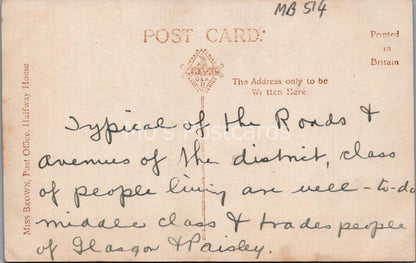 MB 514
POST CARD.
Printed
in
Britain
The Address only to be
Written Here.
Miss Brown, Post Office, Halfway House
Typical of the Roads &
avenues of the district, class
of people living are well-to-do
middle class & tradespeople
of Glasgow & Paisley.
Mo's Postcards